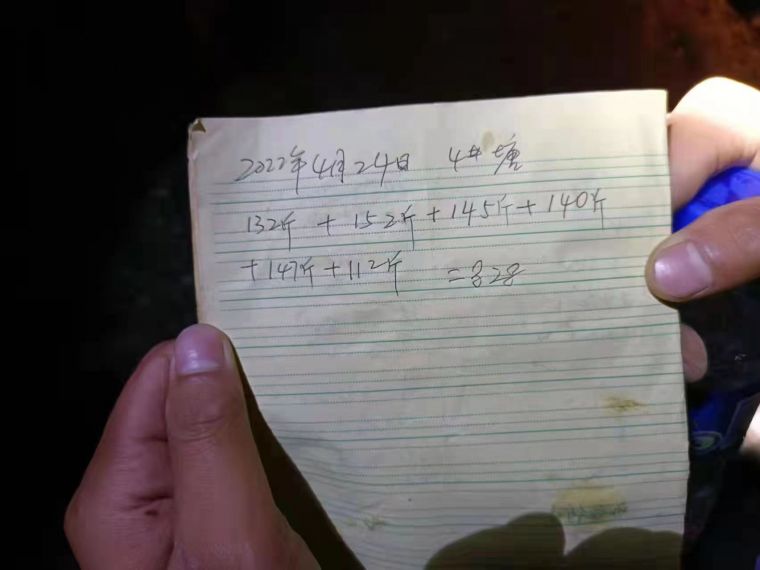 2022年4月24日 4#塘
132斤 + 152斤 + 145斤 + 140斤
+ 147斤 + 112斤 = 828